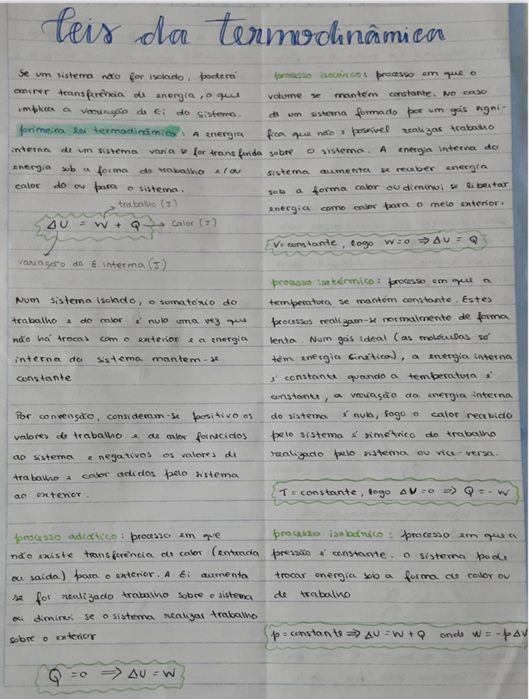 leis da termodinâmica
Se um sistema não for isolado, poderá
ocorrer transferência de energia, o que
implica a variação de Ei do sistema.
primeira lei termodinâmica: A energia
interna de um sistema varia se for transferida
energia sob a forma de trabalho e/ou
calor do ou para o sistema.
trabalho (J)
ΔU = W + Q → calor (J)
variação da E. interna (J)
Num sistema isolado, o somatório do
trabalho e do calor é nulo uma vez que
não há trocas com o exterior e a energia
interna do sistema mantem-se
constante
Por convenção, consideram-se positivo os
valores de trabalho e de calor fornecidos
ao sistema e negativos os valores de
trabalho e calor cedidos pelo sistema
ao exterior.
processo adiabático: processo em que
não existe transferência de calor (entrada
ou saída) para o exterior. A Ei aumenta
se for realizado trabalho sobre o sistema
ou diminui se o sistema realizar trabalho
sobre o exterior
Q = 0 ⟹ ΔU = W
processo isocórico: processo em que o
volume se mantém constante. No caso
de um sistema formado por um gás signi-
fica que não é possível realizar trabalho
sobre o sistema. A energia interna do
sistema aumenta se receber energia
sob a forma calor ou diminui se libertar
energia como calor para o meio exterior.
V = constante, logo W = 0 ⟹ ΔU = Q
processo isotérmico: processo em que a
temperatura se mantém constante. Estes
processos realizam-se normalmente de forma
lenta. Num gás ideal (as moléculas só
têm energia cinética), a energia interna
é constante quando a temperatura é
constante, a variação da energia interna
do sistema é nula, logo o calor recebido
pelo sistema é simétrico do trabalho
realizado pelo sistema ou vice-versa.
T = constante, logo ΔU = 0 ⟹ Q = - W
processo isobárico: processo em que a
pressão é constante. O sistema pode
trocar energia sob a forma de calor ou
de trabalho
p = constante ⟹ ΔU = W + Q onde W = -pΔV